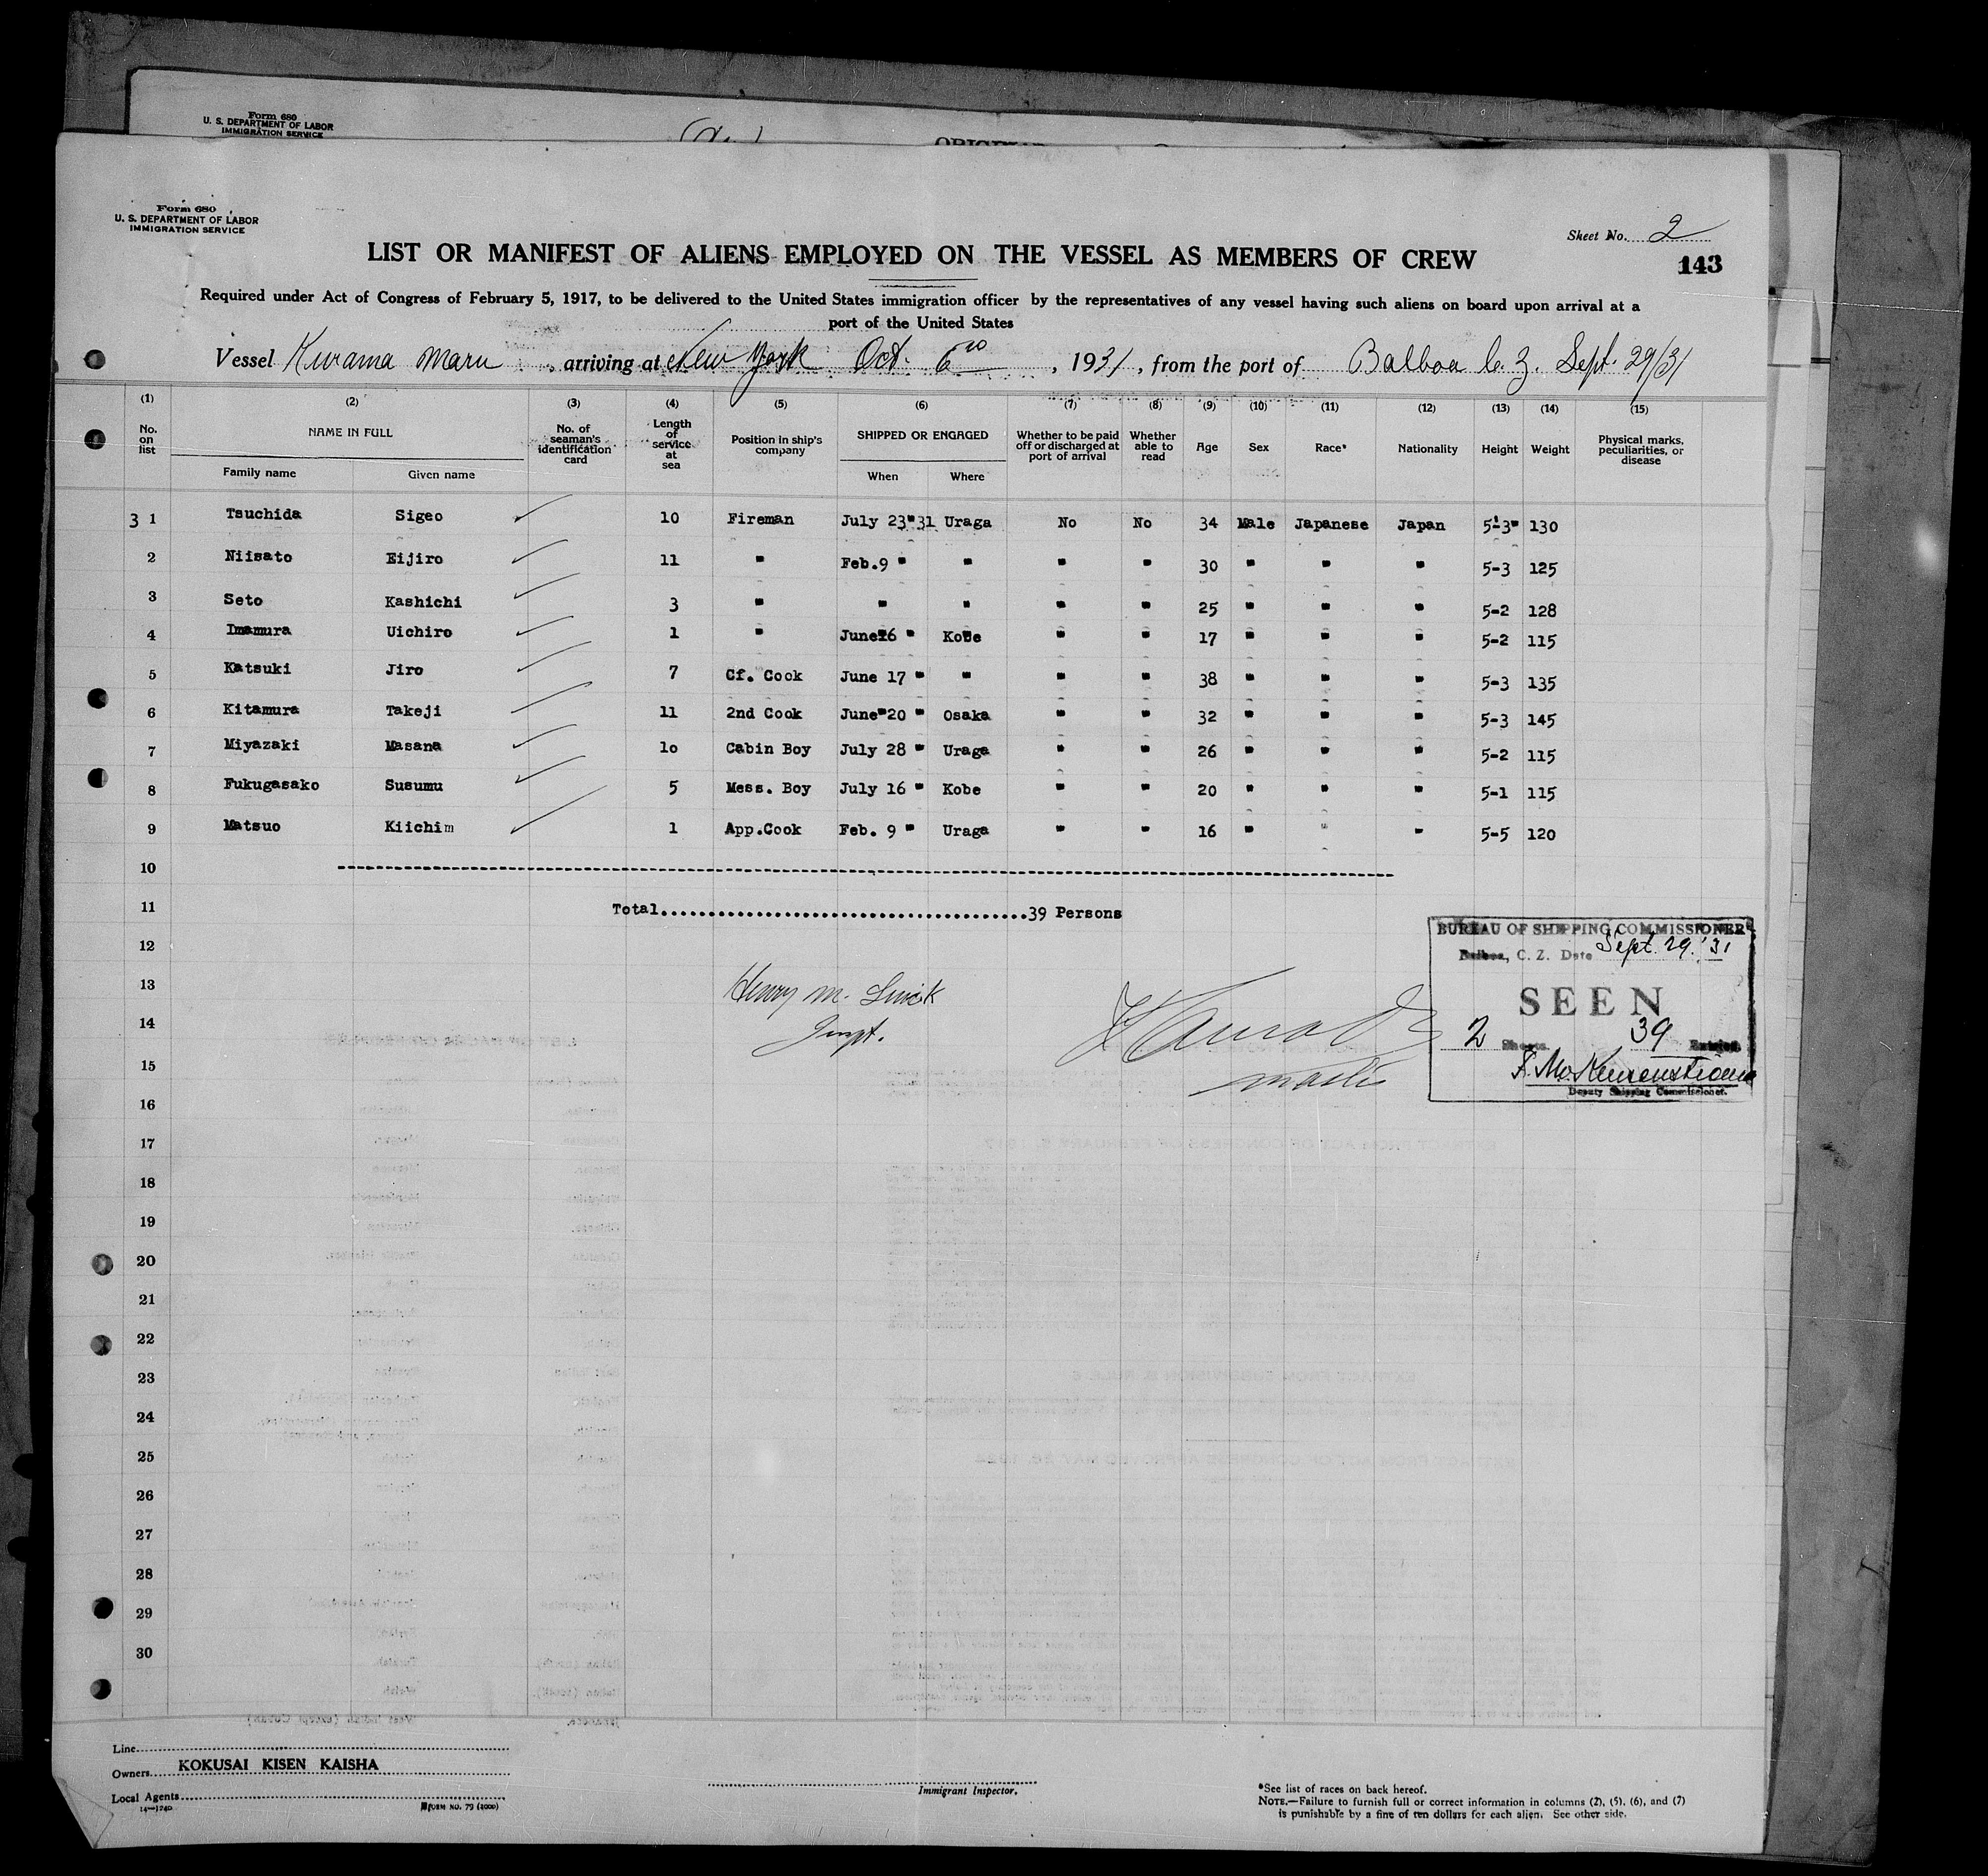 Form 680
U. S. DEPARTMENT OF LABOR
IMMIGRATION SERVICE
Form 680
U. S. DEPARTMENT OF LABOR
IMMIGRATION SERVICE
Sheet No. 2
LIST OR MANIFEST OF ALIENS EMPLOYED ON THE VESSEL AS MEMBERS OF CREW
143
Required under Act of Congress of February 5, 1917, to be delivered to the United States immigration officer by the representatives of any vessel having such aliens on board upon arrival at a
port of the United States
Vessel Kurama Maru, arriving at New York Oct. 6, 1931, from the port of Balboa C. Z. Sept. 29/31
(1) (2) (3) (4) (5) (6) (7) (8) (9) (10) (11) (12) (13) (14) (15)
No. on list
NAME IN FULL
Family name
Given name
No. of seaman's identification card
Length of service at sea
Position in ship's company
SHIPPED OR ENGAGED
When
Where
Whether to be paid off or discharged at port of arrival
Whether able to read
Age
Sex
Race*
Nationality
Height
Weight
Physical marks, peculiarities, or disease
3 1 Tsuchida Sigeo 10 Fireman July 23"31 Uraga No No 34 Male Japanese Japan 5'-3" 130
2 Niisato Eijiro 11 " Feb.9 " " " " 30 " " " 5-3 125
3 Seto Kashichi 3 " " " " " 25 " " " 5-2 128
4 Imamura Uichiro 1 " June 26 " Kobe " " 17 " " " 5-2 115
5 Katsuki Jiro 7 Cf. Cook June 17 " " " " 38 " " " 5-3 135
6 Kitamura Takeji 11 2nd Cook June"20 " Osaka " " 32 " " " 5-3 145
7 Miyazaki Masana 1o Cabin Boy July 28 " Uraga " " 26 " " " 5-2 115
8 Fukugasako Susumu 5 Mess. Boy July 16 " Kobe " " 20 " " " 5-1 115
9 Matsuo Kiichim 1 App.Cook Feb. 9 " Uraga " " 16 " " " 5-5 120
10
11 Total........................................39 Persons
BUREAU OF SHIPPING COMMISSIONER
Balboa, C. Z. Date Sept. 29. '31
SEEN
2 Sheets. 39 Entries.
Deputy Shipping Commissioner.
12
13 Henry M.
14 Inspt.
15
16
17
18
19
20
21
22
23
24
25
26
27
28
29
30
Line
Owners KOKUSAI KISEN KAISHA
Local Agents
14—1240
FORM NO. 79 (4000)
Immigrant Inspector.
*See list of races on back hereof.
NOTE.—Failure to furnish full or correct information in columns (2), (5), (6), and (7)
is punishable by a fine of ten dollars for each alien. See other side.